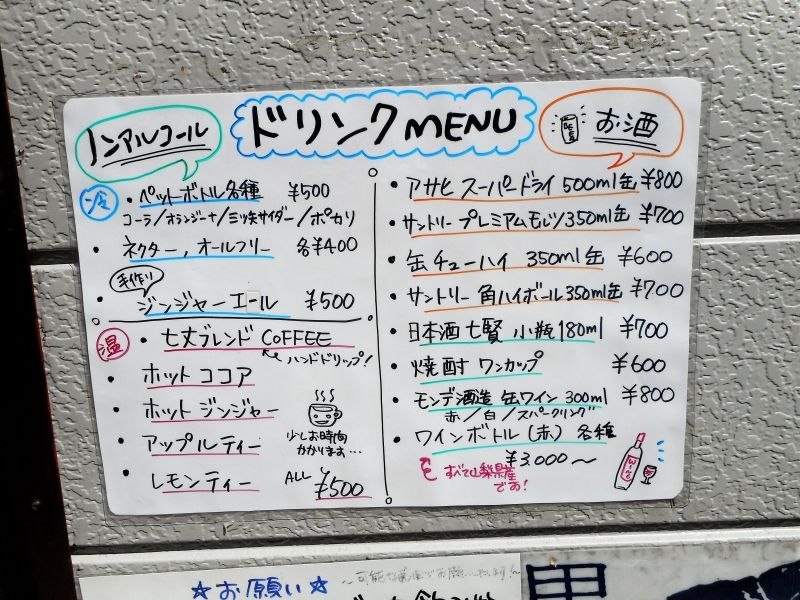 ドリンクMENU
ノンアルコール
冷
・ペットボトル各種 ¥500
コーラ/オランジーナ/ミツ矢サイダー/ポカリ
・ネクター,オールフリー 各¥400
手作り
・ジンジャーエール ¥500
温
・七丈ブレンド COFFEE
ハンドドリップ!
・ホットココア
・ホットジンジャー
・アップルティー
・レモンティー
少しお時間
かかります…
ALL ¥500
お酒
BEER
・アサヒ スーパードライ 500ml缶 ¥800
・サントリー プレミアムモルツ350ml缶 ¥700
・缶チューハイ 350ml缶 ¥600
・サントリー 角ハイボール350ml缶 ¥700
・日本酒七賢 小瓶180ml ¥700
・焼酎 ワンカップ ¥600
・モンデ酒造 缶ワイン 300ml ¥800
赤/白/スパークリング
・ワインボトル(赤)各種
¥3,000〜
すべて山梨県産
です!
☆お願い☆